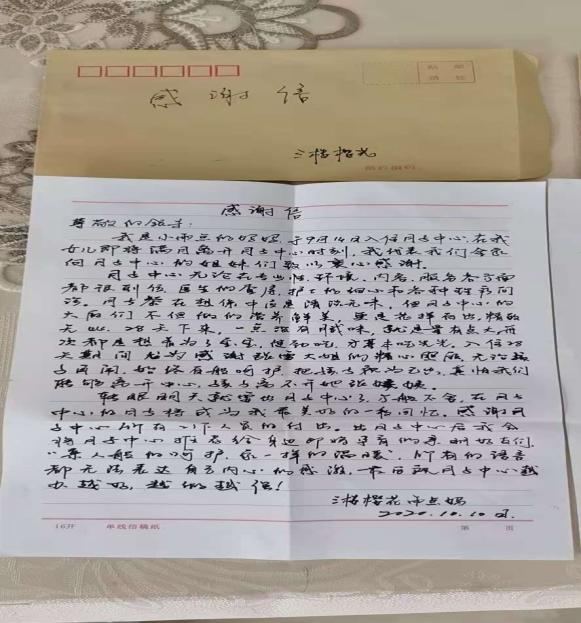 贴 邮
感谢信
三楼樱花
邮政编码
感谢信
尊敬的领导:
我是小雨点的妈妈,于9月14日入住月子中心,在我
女儿即将满月离开月子中心时刻,我代表我们全家
向月子中心的姐妹们致以衷心感谢。
月子中心无论在专业性、环境、内容、服务各方面
都很到位,医生的查房,护士的细心和各种理疗问
候。月子餐在想像中应是清淡无味,但月子中心的
大厨们不但做的营养鲜美,更是花样百出,精致
28天下来,一点没有腻味,就是量有点大,每
次都是想着为了宝宝,使劲吃,才基本吃光光。入住28
天期间尤为感谢 大姐的精心照顾,无论孩
子日闹,始终有般呵护,把孩子视为己出,真怕我们
能够离开中心,孩子离不开她
转眼明天就要出月子中心了,万般不舍,在月子
中心的月子将成为我最美好的一段回忆。感谢月
子中心所有工作人员的付出。出月子中心后我会
将月子中心推荐给身边即将孕育的亲朋好友们,
“亲人般的呵护,家一样的温暖”,所有的语言
都无法表达自己内心的感激,最后祝月子中心越
办越好,越做越强!
三楼樱花雨点妈
2020.10.10日
16开 单线信稿纸 第 页